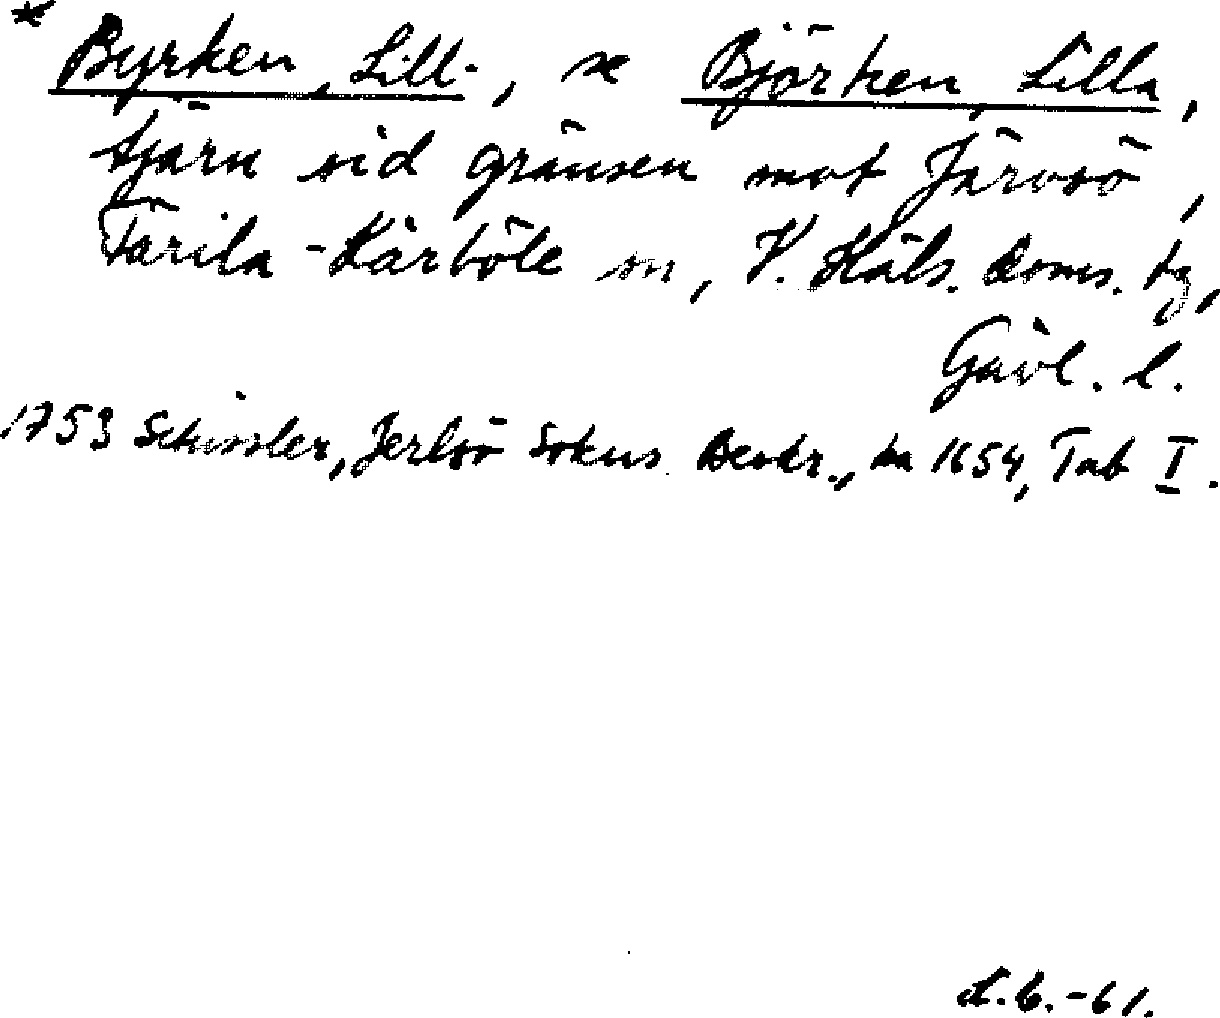 * Byrken, Lill-, se Björken, Lilla,
tjärn vid gränsen mot Järvsö,
Färila-Kårböle sn, V. Häls. doms. tg,
Gävl. l.
1753 Schissler, Jerlsö Sokns Beskr., ka 1654, Tab I.
L.G.-61.